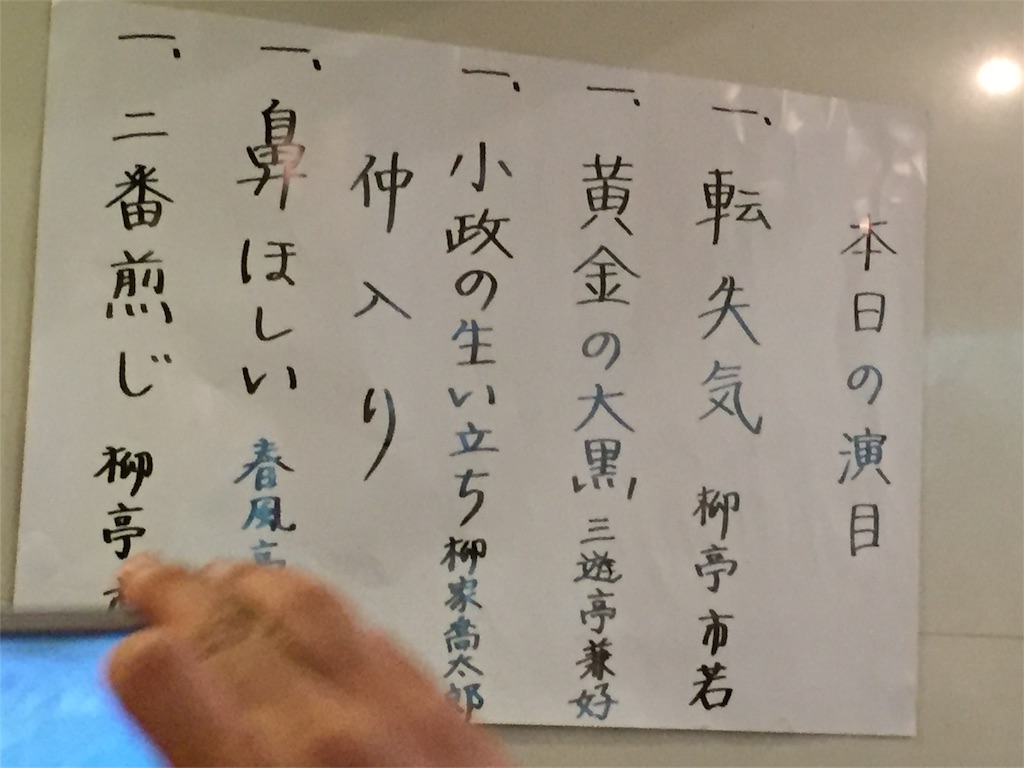 本日の演目
一、転失気 柳亭市若
一、黄金の大黒 三遊亭兼好
一、小政の生い立ち 柳家喬太郎
仲入り
一、鼻ほしい 春風亭
一、二番煎じ 柳亭